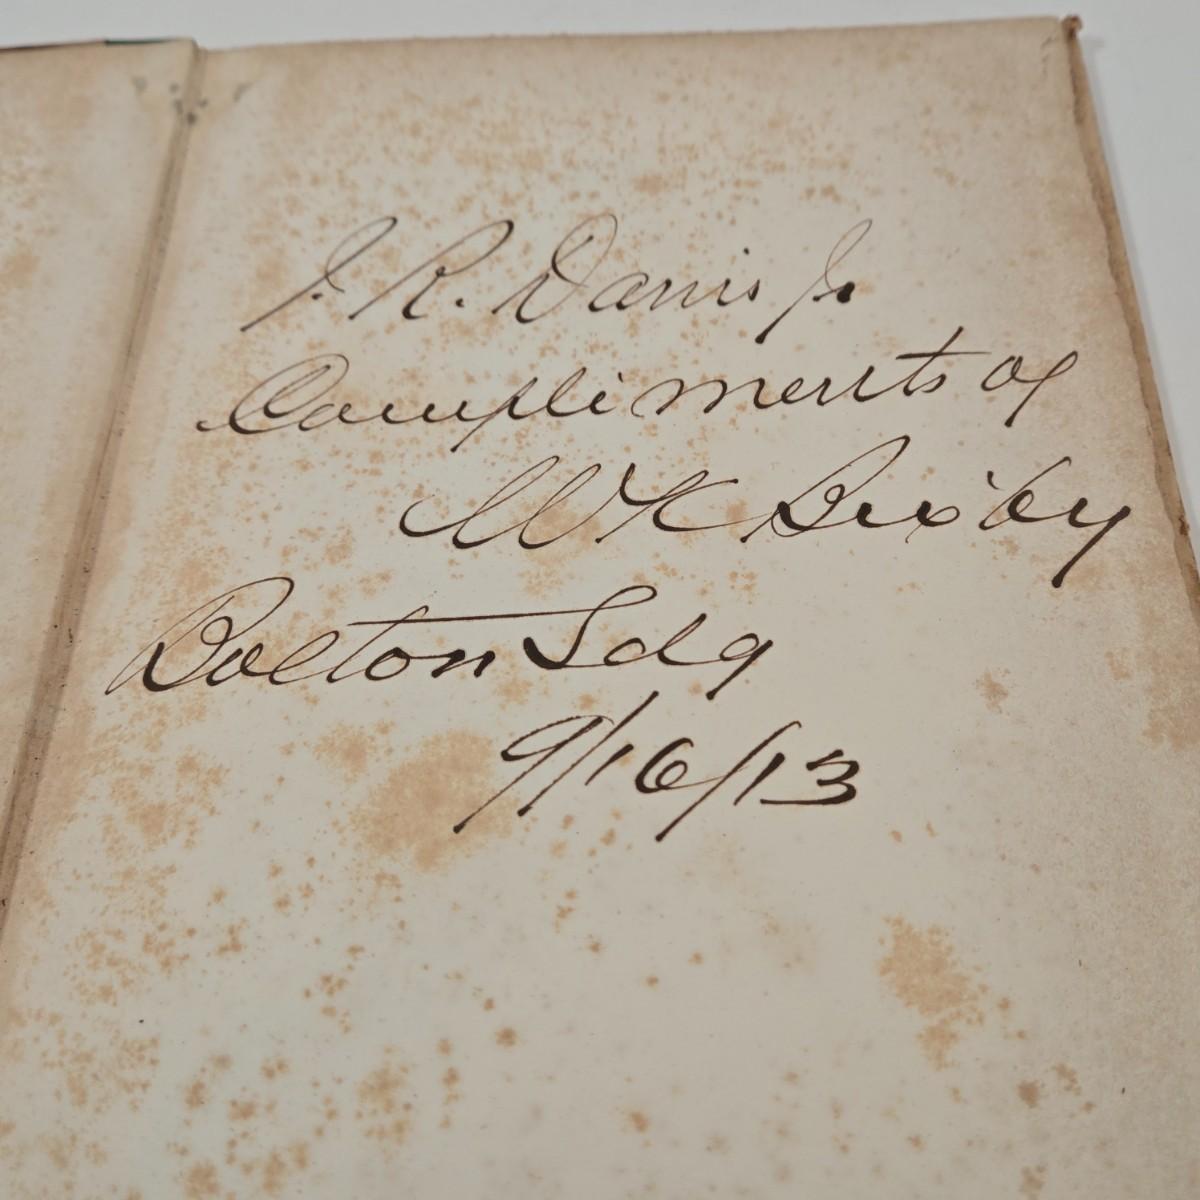 J. R. Davis Jr
Compliments of
WK Bixby
Bolton Ldg
9/16/13